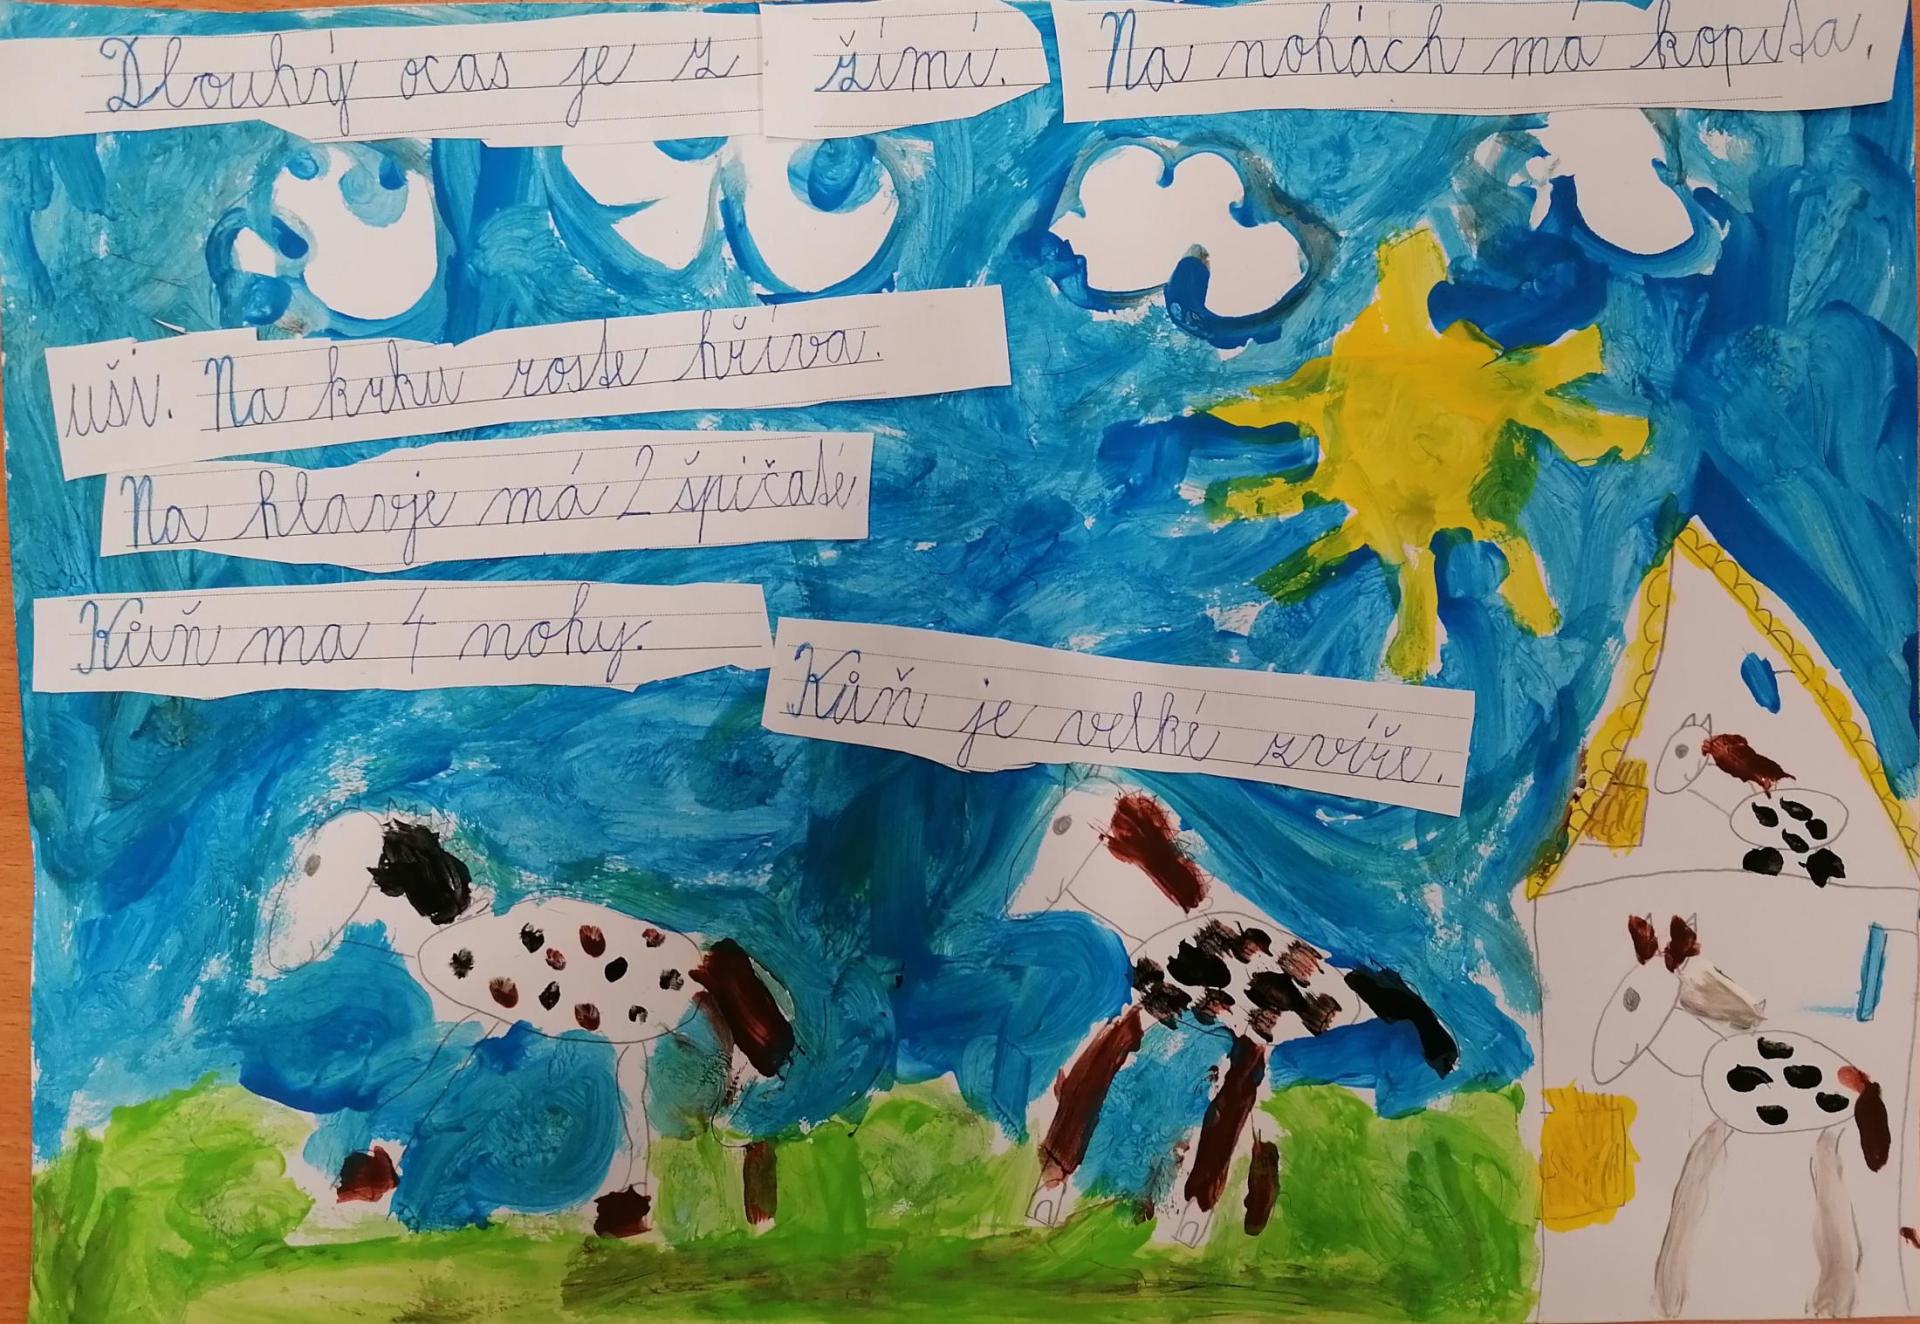 Dlouhý ocas je z žímí. Na nohách má kopita.
uši. Na krku roste hříva.
Na hlavje má 2 špičaté
Kůň ma 4 nohy.
Kůň je velké zvíře.